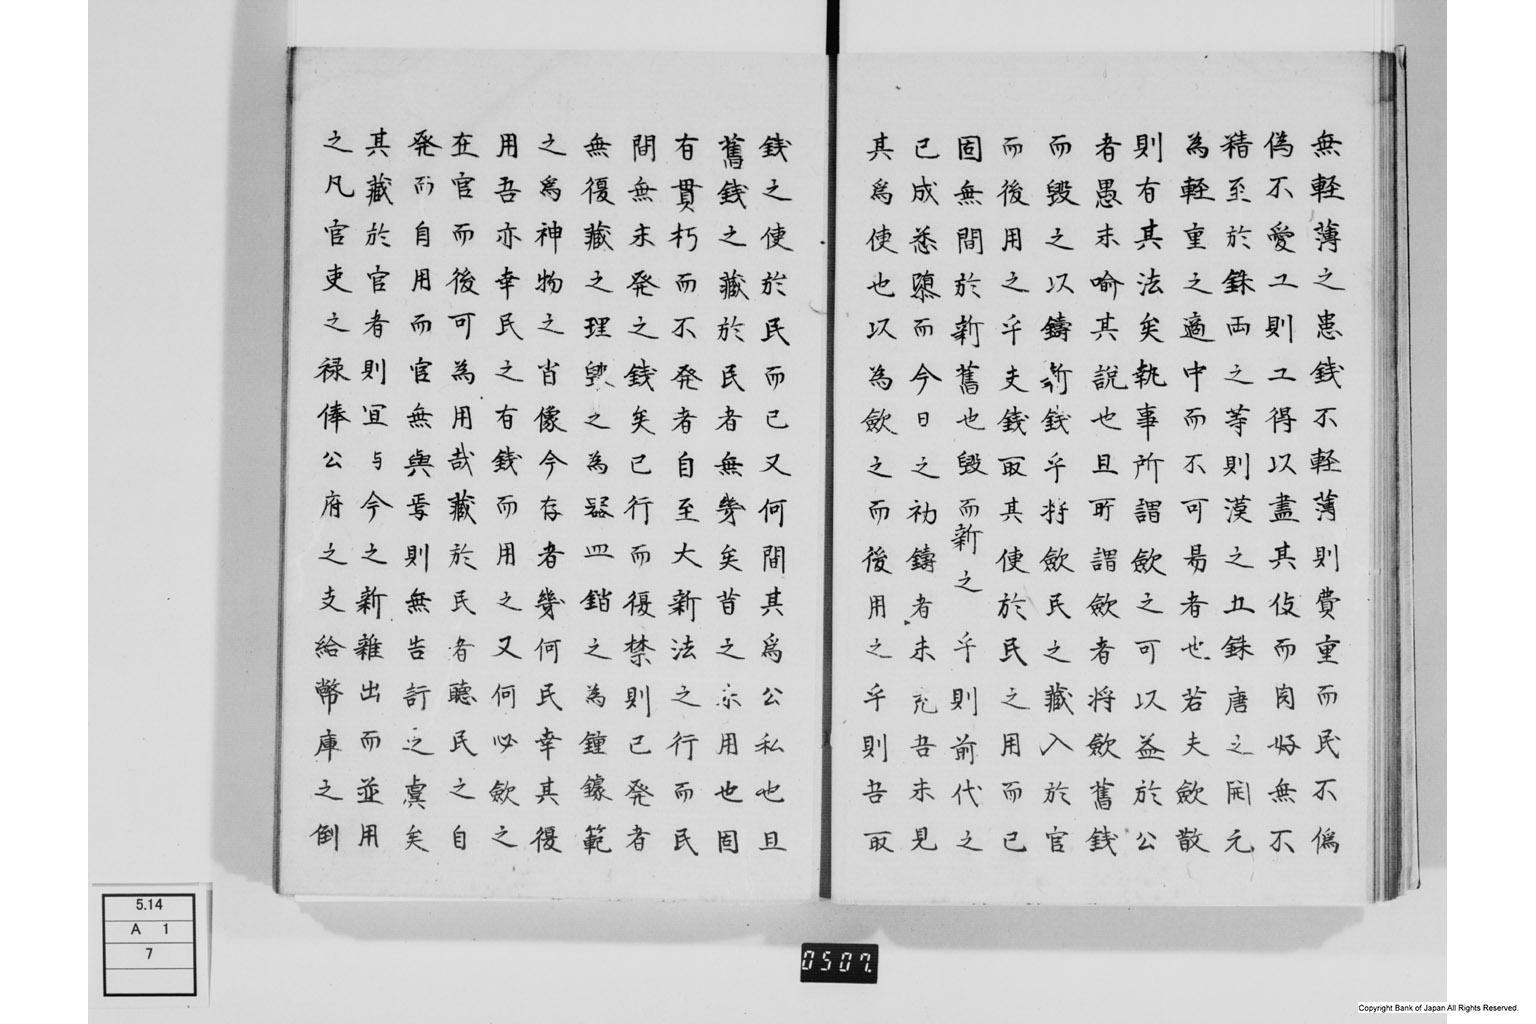 無輕薄之患錢不輕薄則費重而民不僞
偽不愛工則工得以盡其伎而肉好無不
精至於銖両之等則漢之五銖唐之開元
為輕重之適中而不可易者也若夫斂散
則有其法矣執事所謂斂之可以益於公
者愚未喻其說也且所謂斂者将斂舊錢
而毀之以鑄新錢乎将斂民之藏入於官
而後用之乎夫錢取其使於民之用而已
固無間於新舊也毀而新之乎則前代之
已成悉隳而今日之初鑄者未充吾未見
其爲使也以為斂之而後用之乎則吾取
錢之使於民而已又何間其爲公私也且
舊錢之藏於民者無幾矣昔之未用也固
有貫朽而不発者自至大新法之行而民
間無未発之錢矣已行而復禁則已発者
無復藏之理毀之為器皿銷之為鐘鐻範
之爲神物之肖像今存者幾何民幸其復
用吾亦幸民之有錢而用之又何必斂之
在官而後可為用哉藏於民者聽民之自
発而自用而官無與焉則無告訐之虞矣
其藏於官者則宜与今之新雜出而並用
之凡官吏之禄俸公府之支給幣庫之倒
5.14
A 1
7
0507.
Copyright Bank of Japan All Rights Reserved.